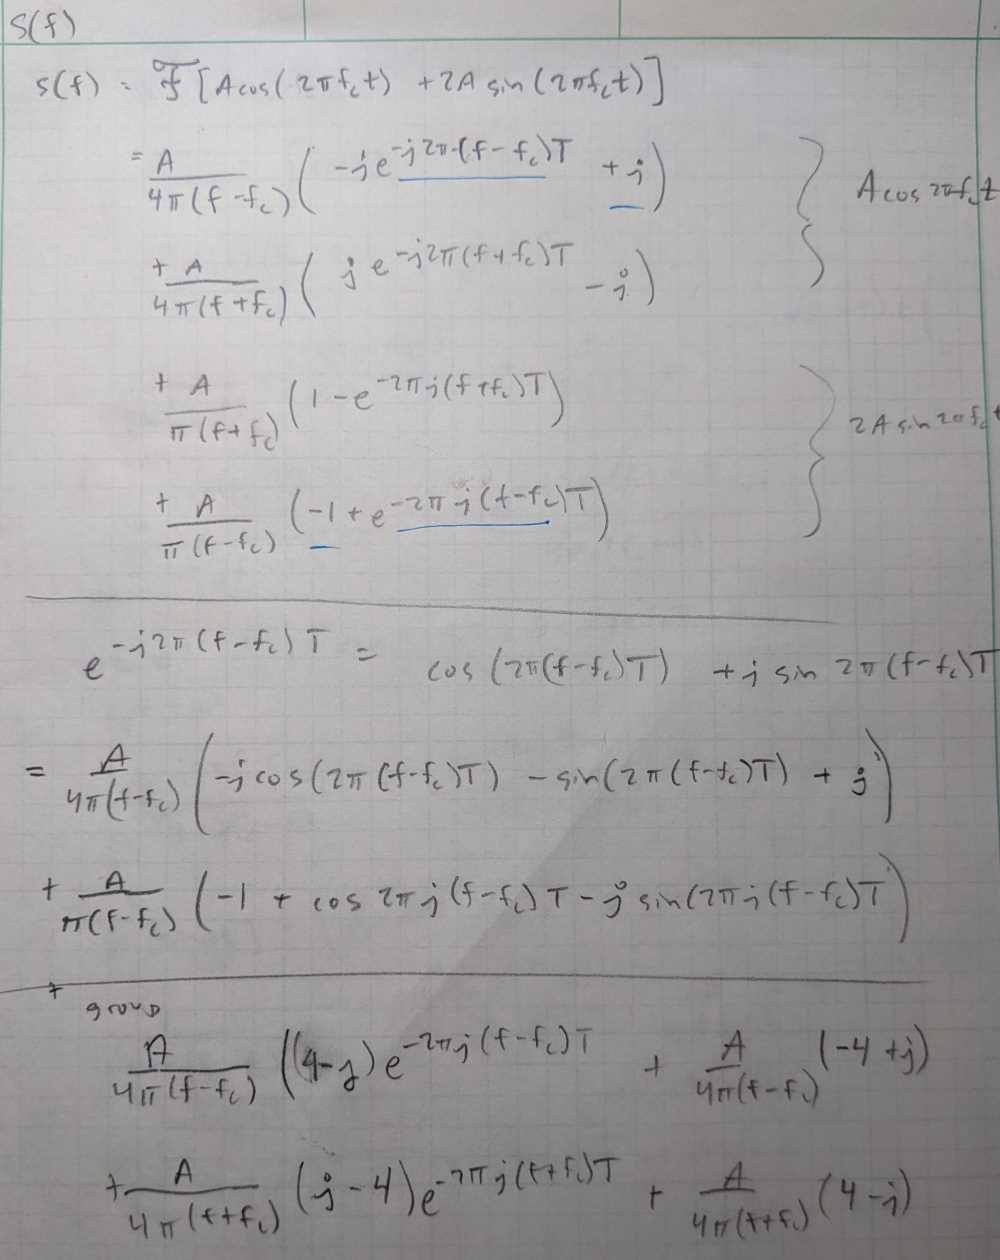 S(f)
S(f) = F [A cos(2πf_c t) + 2A sin(2πf_c t)]
= A / 4π(f-f_c) (-je^{-j2π(f-f_c)T} + j)
A cos 2πf_c t
+ A / 4π(f+f_c) (je^{-j2π(f+f_c)T} - j)
+ A / π(f+f_c) (1-e^{-2πj(f+f_c)T})
2A sin 2πf_c t
+ A / π(f-f_c) (-1+e^{-2πj(f-f_c)T})
e^{-j2π(f-f_c)T} = cos(2π(f-f_c)T) + j sin 2π(f-f_c)T
= A / 4π(f-f_c) (-j cos(2π(f-f_c)T) - sin(2π(f-f_c)T) + j)
+ A / π(f-f_c) (-1 + cos 2πj(f-f_c)T - j sin(2πj(f-f_c)T)
+
group
A / 4π(f-f_c) ((4-j)e^{-2πj(f-f_c)T} + A / 4π(f-f_c) (-4+j)
+ A / 4π(f+f_c) (j-4)e^{-2πj(f+f_c)T} + A / 4π(f+f_c) (4-j)